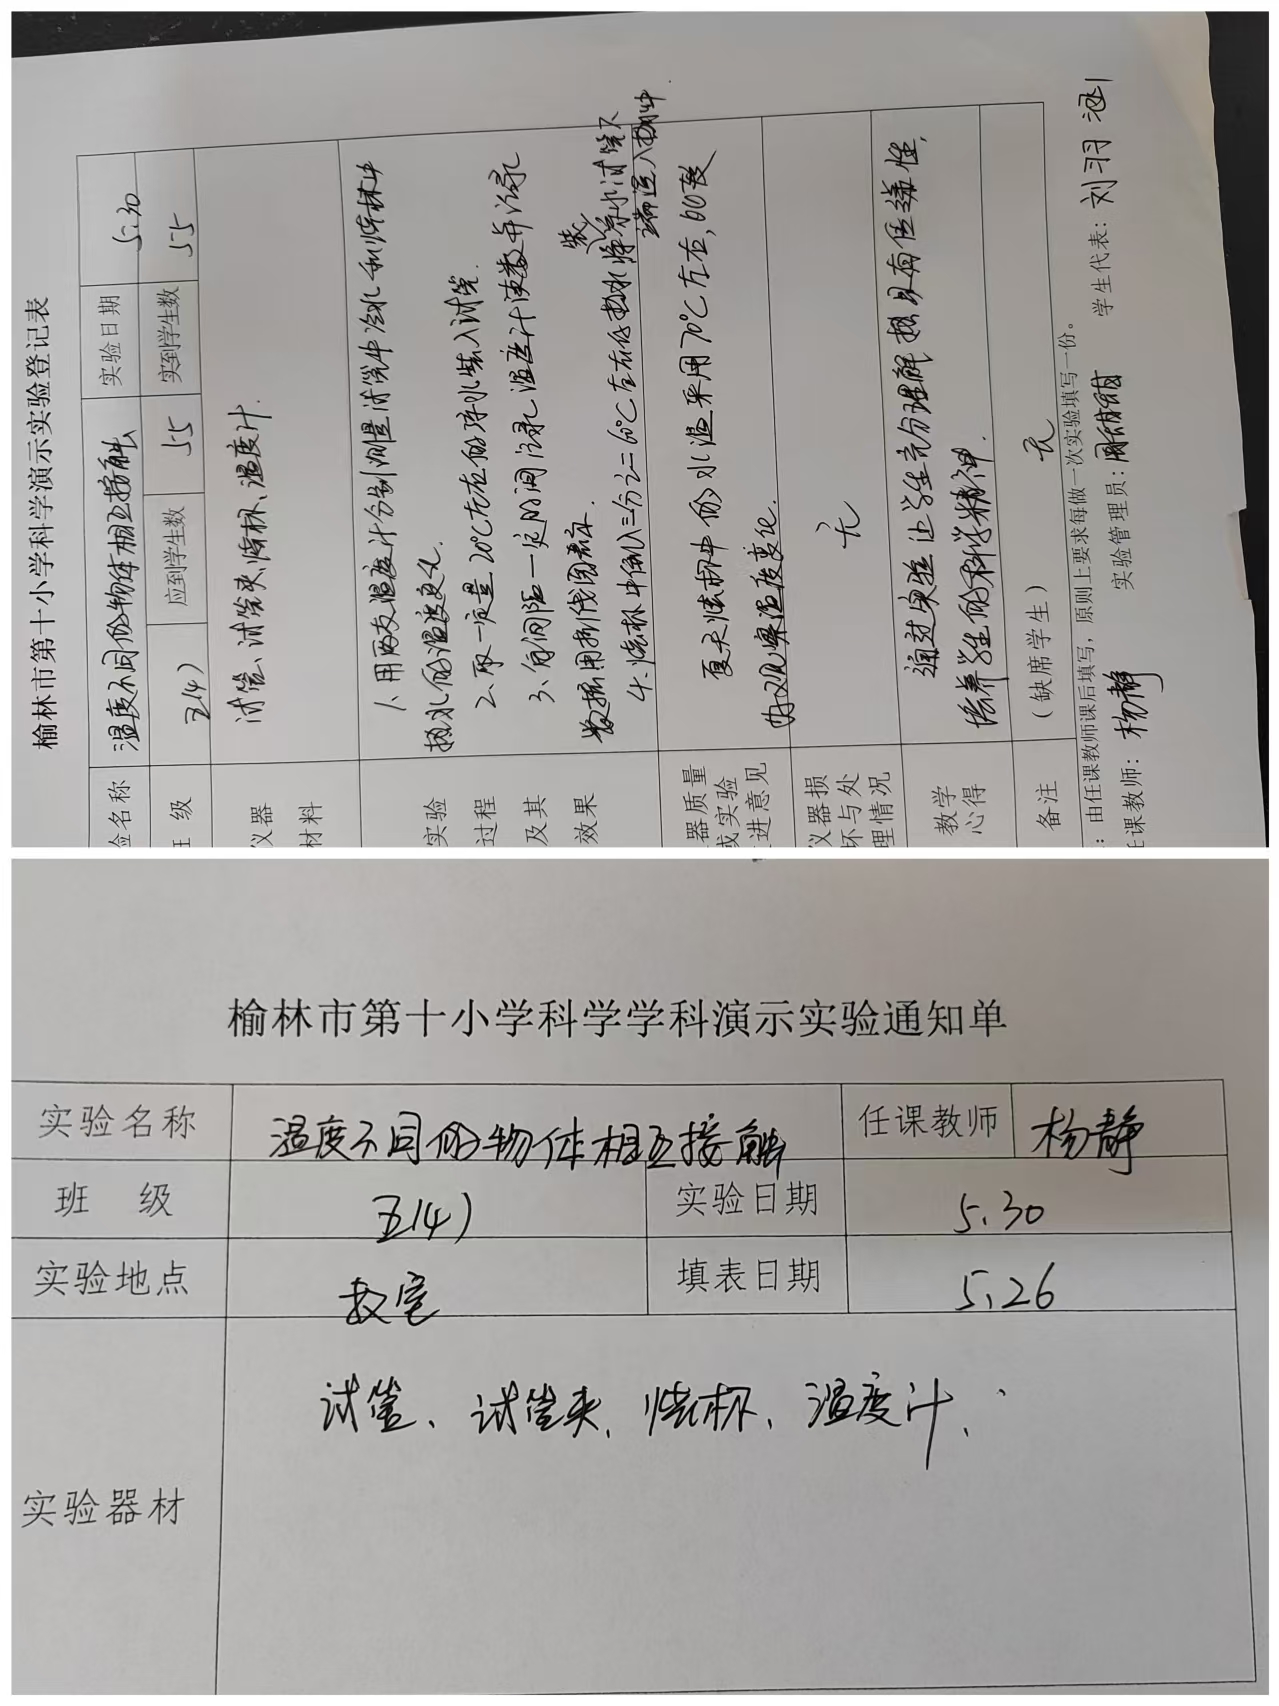 榆林市第十小学科学演示实验登记表
验名称 温度不同的物体相互接触 实验日期 5.30
级 五(4) 应到学生数 55 实到学生数 55
仪器
材料
试管、试管夹、烧杯、温度计.
实验
过程
及其
效果
1、用两支温度计分别测量试管中冷水和烧杯中
热水的温度变化.
2、取一定量20℃左右的冷水装入试管.
3、每间隔一定时间记录温度计读数并记录
数据用折线图表示
4、烧杯中倒入三分之二60℃左右的热水将装冷水试管下
端浸入热水中
器质量
或实验
进意见
夏天烧杯中的水温采用70℃左右,60度
为观察温度变化.
仪器损
坏与处
理情况
无
教学
心得
通过实验让学生充分理解热具有传递性,
培养学生的科学精神.
备注 (缺席学生) 无
:由任课教师课后填写,原则上要求每做一次实验填写一份。
任课教师: 杨静 实验管理员: 学生代表: 刘羽涵
榆林市第十小学科学学科演示实验通知单
实验名称 温度不同的物体相互接触 任课教师 杨静
班 级 五(4) 实验日期 5.30
实验地点 教室 填表日期 5.26
实验器材 试管、试管夹、烧杯、温度计、